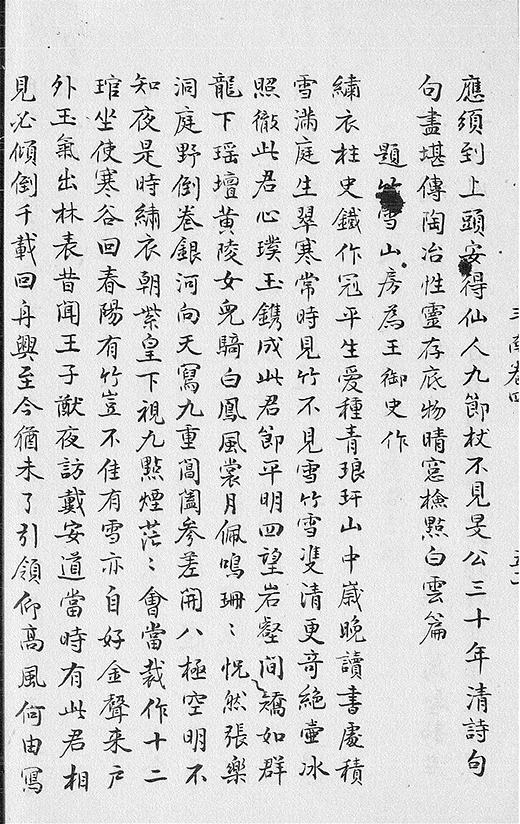 應須到上頭安得仙人九節杖不見旻公三十年清詩句
句盡堪傳陶冶性靈存底物晴窓檢點白雲篇
題竹雪山房為王御史作
繡衣柱史鐵作冠平生愛種青琅玕山中歲晚讀書處積
雪滿庭生翠寒常時見竹不見雪竹雪雙清更竒絕壷冰
照徹此君心璞玉鎸成此君節平明四望岩壑間矯如群
龍下瑶壇黄陵女兒騎白鳳風裳月佩鳴珊〻怳然張樂
洞庭野倒卷銀河向天寫九重閶闔參差開八極空明不
知夜是時繡衣朝紫皇下視九點煙茫〻會當裁作十二
琯坐使寒谷回春陽有竹豈不佳有雪亦自好金聲来戶
外玉氣出林表昔聞王子猷夜訪戴安道當時有此君相
見必傾倒千載回舟興至今猶未了引領仰高風何由寫